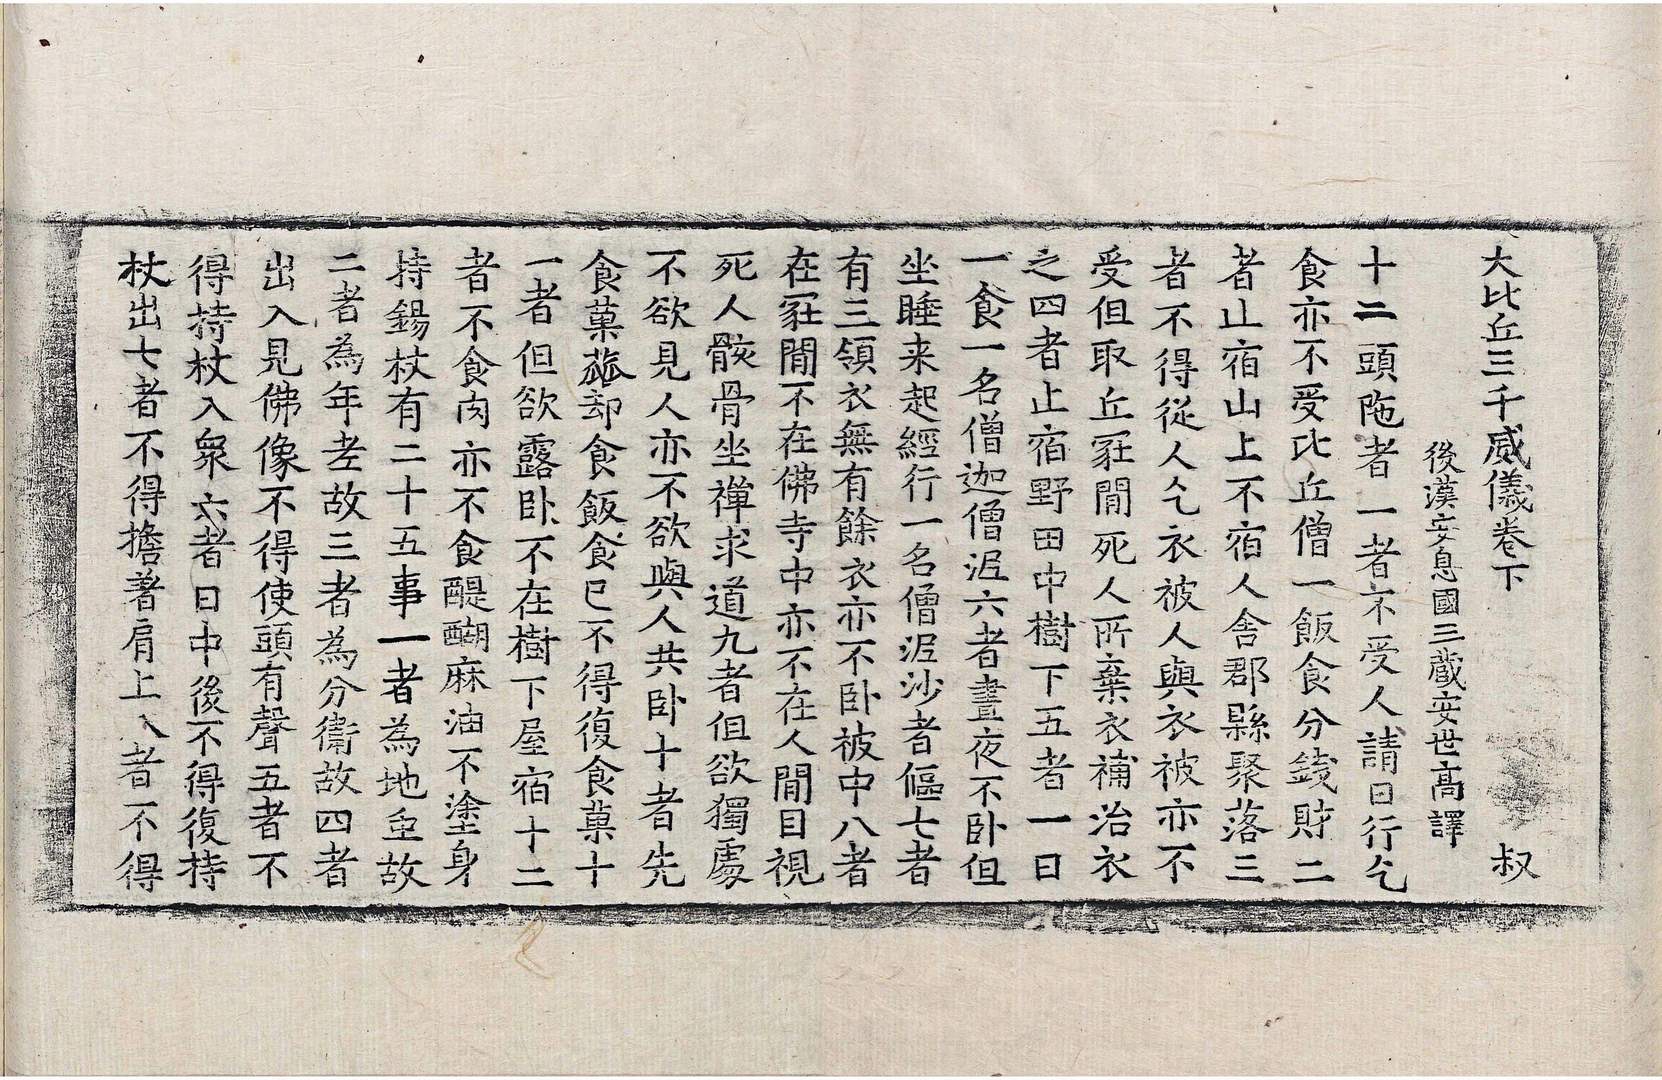 大比丘三千威儀卷下 叔
後漢安息國三藏安世高譯
十二頭陁者一者不受人請日行乞
食亦不受比丘僧一飯食分錢財二
者止宿山上不宿人舍郡縣聚落三
者不得從人乞衣被人與衣被亦不
受但取丘冢閒死人所棄衣補治衣
之四者止宿野田中樹下五者一日
一食一名僧迦僧泥六者晝夜不卧但
坐睡来起經行一名僧泥沙者傴七者
有三領衣無有餘衣亦不卧被中八者
在冢閒不在佛寺中亦不在人閒目視
死人骸骨坐禪求道九者但欲獨處
不欲見人亦不欲與人共卧十者先
食菓蓏却食飯食已不得復食菓十
一者但欲露卧不在樹下屋宿十二
者不食肉亦不食醍醐麻油不塗身
持錫杖有二十五事一者為地虫故
二者為年老故三者為分衞故四者
出入見佛像不得使頭有聲五者不
得持杖入衆六者日中後不得復持
杖出七者不得擔著肩上八者不得